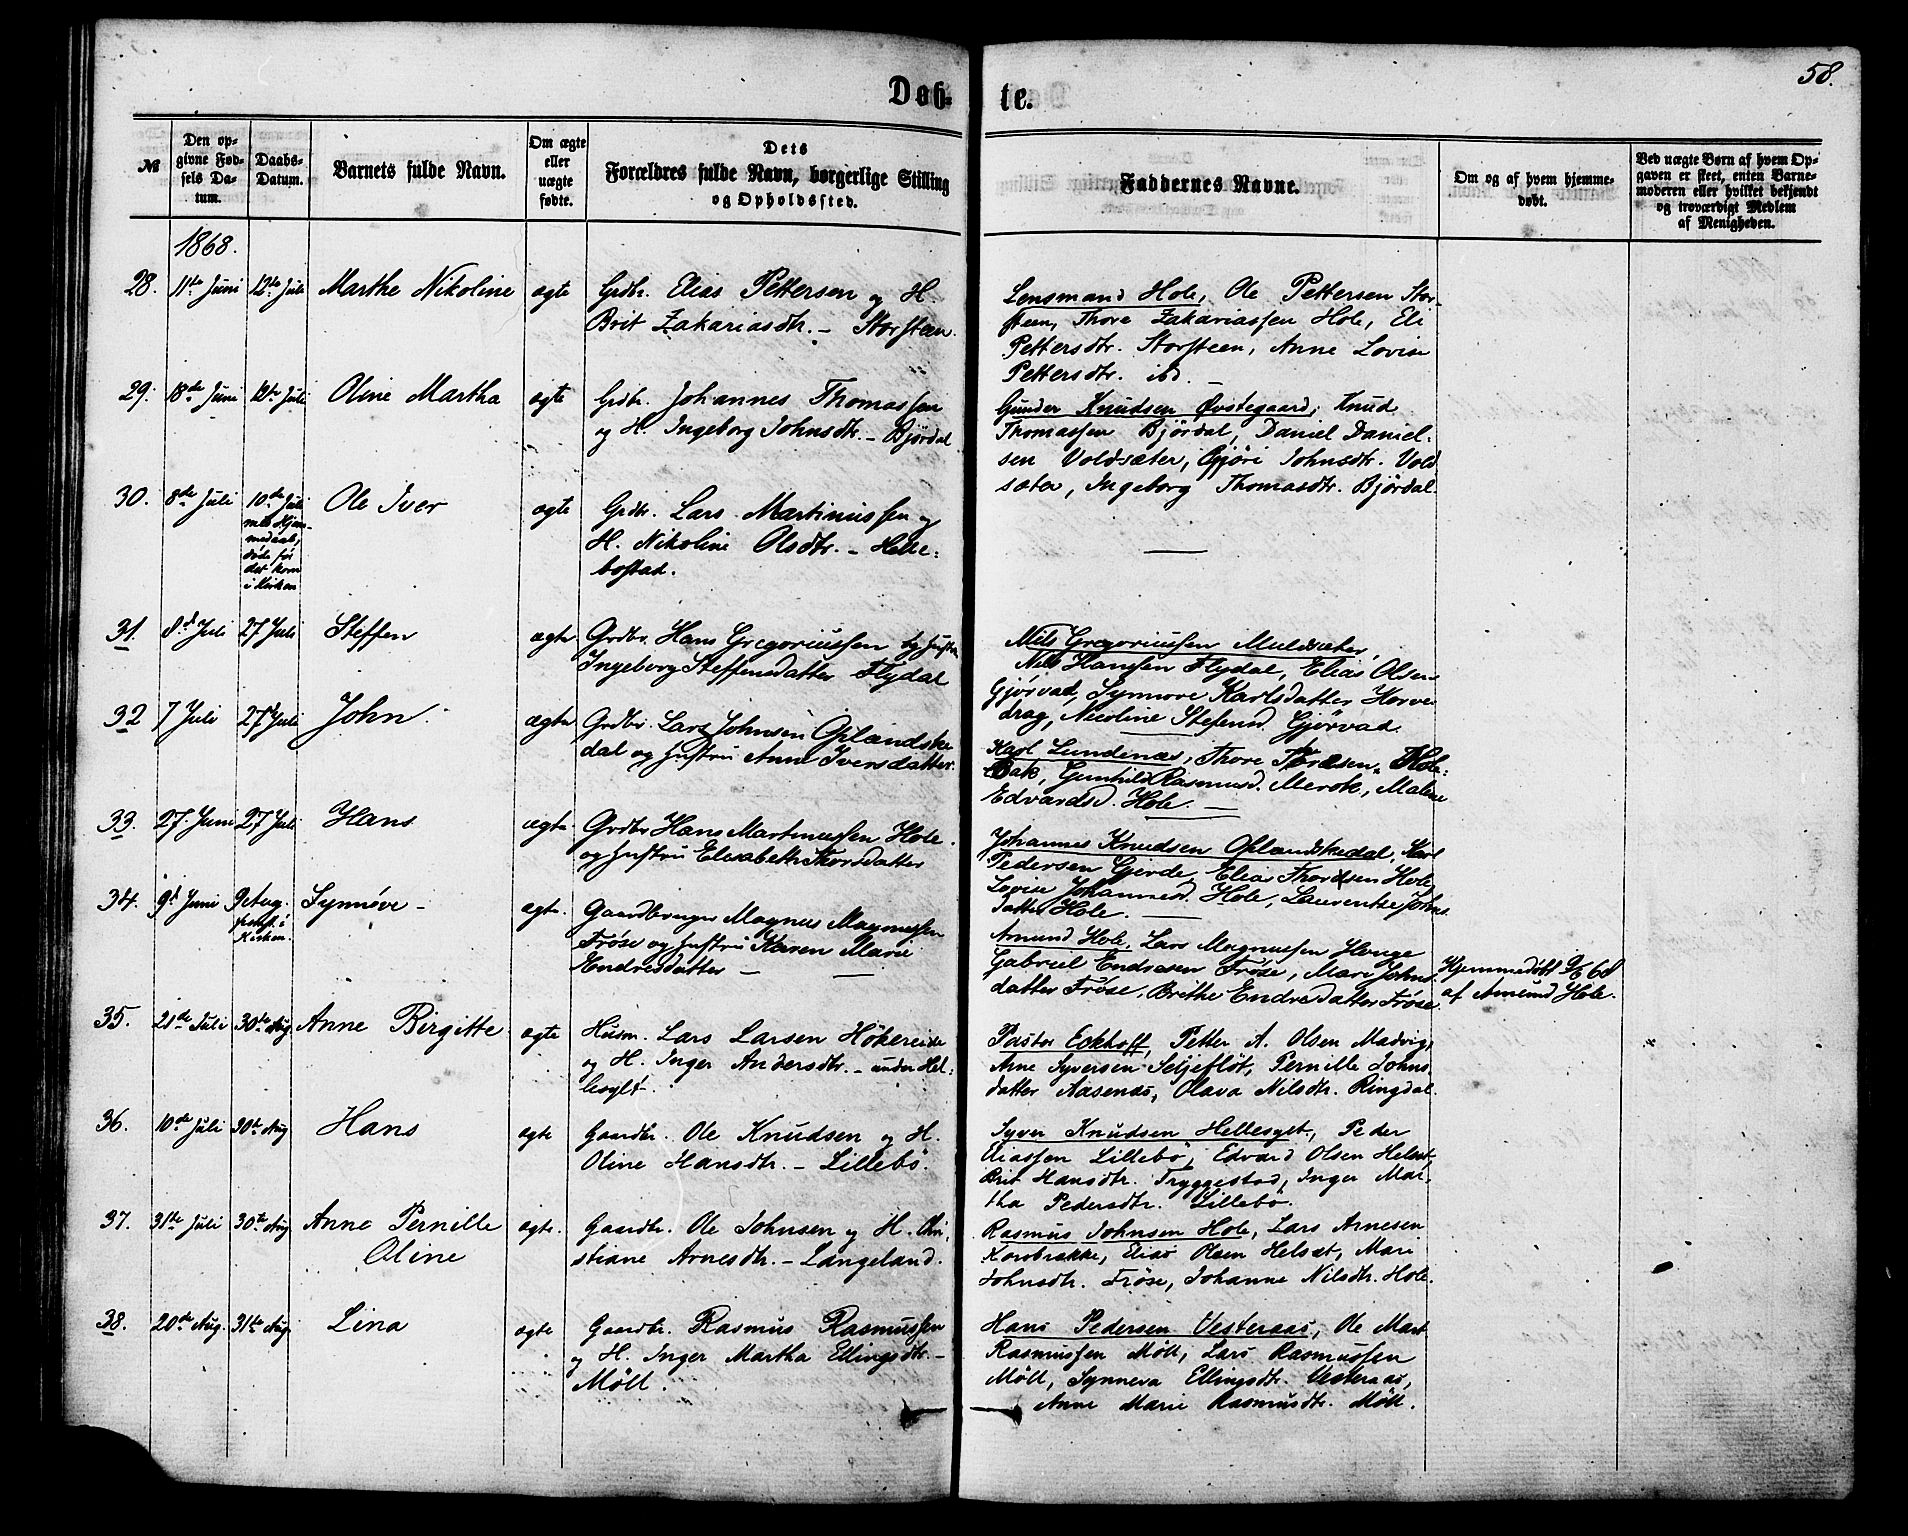 58.
Døb- te.
№
Den op-
givne Fød-
sels Da-
tum.
Daabs-
Datum.
Barnets fulde Navn.
Om ægte
eller
uægte
fødte.
Dets
Forældres fulde Navn, borgerlige Stilling
og Opholdssted.
Faddernes Navne.
Om og af hvem hjemme-
døbt.
Ved uægte Børn af hvem Op-
gaven er skeet, enten Barne-
moderen eller hvilket bekjendt
og troværdigt Medlem
af Menigheden.
1868.
28. 11te Juni 12te Juli Marthe Nikoline ægte Grdbr. Elias Pettersen og H.
Brit Zakariasdtr. – Storsteen.
Lensmand Hole, Ole Pettersen Stor-
steen, Thore Zakariassen Hole, Eli
Pettersdtr. Storsteen, Anne Lovise
Pettersdtr. ibd. –
29. 18de Juni 12te Juli Oline Martha ægte Grdbr. Johannes Thomassen
og H. Ingeborg Johnsdtr. – Bjørdal
Gunder Knudsen Øvstegaard, Knud
Thomassen Bjørdal, Daniel Daniel-
sen Voldsæter, Gjøri Johnsdtr. Vold
sæter, Ingeborg Thomasdtr. Bjørdal.
30. 8de Juli 10de Juli
med Hjem-
medaab,
døde før
det kom
i Kirken
Ole Iver ægte Grdbr. Lars Martinussen og
H. Nikoline Olsdtr. – Helle-
bostad.
—
31. 8d Juli 27 Juli Steffen ægte Grdbr. Hans Gregoriussen og Hustru
Ingeborg Steffensdatter Flydal
Nils Gregoriussen Muldsæter,
Nils Hansen Flydal, Elias Olsen
Gjørvad, Synnøve Karlsdatter Horve-
drag, Nicoline Stefensd. Gjørvad.
32 7 Juli 27d Juli John. ægte Grdbr. Lars Johnsen Oplandske
dal og Hustru Anne Iversdatter.
Karl Lundenæs, Thore Thoresen Hole-
Bak, Gunhild Rasmusd. Merok, Malene
Edvardsd. Hole. —
33. 27. Juni 27 Juli Hans ægte Grdbr Hans Martinussen Hole.
og Hustru Elisabeth Thoresdatter
Johannes Knudsen Oplandskedal, Karl
Pedersen Gjerde, Elias Thoresen Hole,
Lovise Johannesd. Hole, Laurentse Johns
datter Hole. —
34. 9d Juni 9 Aug.
i
Kirken.
Synnøve – ægte. Gaardbruger Magnus Magnussen
Frøse og Hustru Karen Marie
Endresdatter — —
Amund Hole, Lars Magnussen Hauge
Gabriel Endresen Frøse, Mari Johns
datter Frøse, Brithe Endresdatter Frøse.
Hjemmedøbt 9/6 68
af Amund Hole.
35. 21de Juli 30te Aug. Anne Birgitte ægte Husm. Lars Larsen Høkereide
og H. Inger Andersdtr. – under Hel-
lesylt.
Pastor Eckhoff, Petter A. Olsen Madvig,
Arne Syversen Seljeflöt, Pernille Johns
datter Aasenæs, Olava Nilsdtr. Ringdal.
36. 10de Juli 30te Aug Hans ægte Gaardbr. Ole Knudsen og H.
Oline Hansdtr. – Lillebö.
Syver Knudsen Hellesylt, Peder
Eliassen Lillebö, Edvard Olsen Helset,
Brit Hansdtr. Tryggestad, Inger Mar-
tha Pedersdtr. Lillebö.
37. 31te Juli 30te Aug Anne Pernille
Oline
ægte. Gaardbr. Ole Johnsen og H. Chri-
stiane Arnesdtr. – Langeland.
Rasmus Johnsen Hole, Lars Arnesen
Korsbrække, Elias Olsen Helset, Mari
Johnsdtr. Frøse, Johanne Nilsdtr. Hole.
38. 20de Aug. 31te Aug. Lina ægte Gaardbr. Rasmus Rasmussen
og H. Inger Martha Ellingsdtr. –
Möll.
Hans Pedersen Vesteraas, Ole Mart.
Rasmussen Möll, Lars Rasmussen
Möll, Synneva Ellingsdtr. Vesteraas,
Anne Marie Rasmusdtr. Möll.